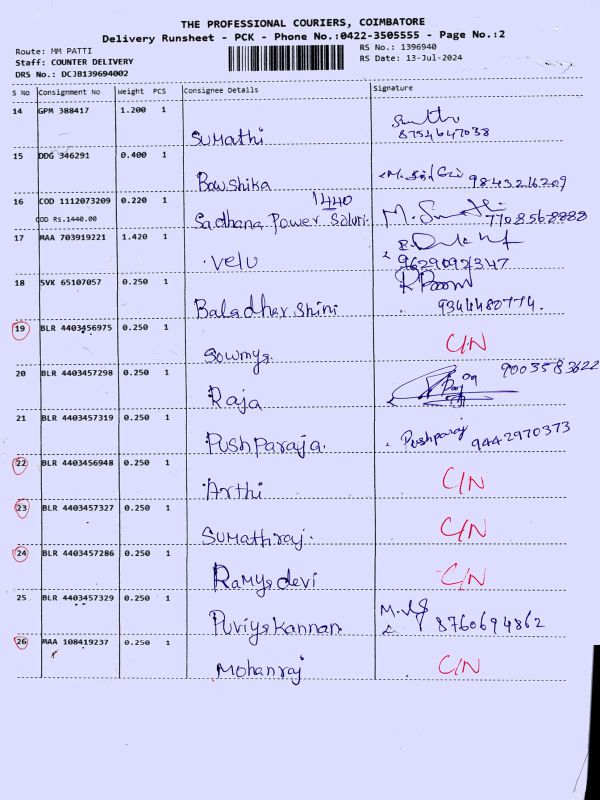 THE PROFESSIONAL COURIERS, COIMBATORE
Delivery Runsheet - PCK - Phone No.:0422-3505555 - Page No.:2
Route: MM PATTI RS No.: 1396940
Staff: COUNTER DELIVERY RS Date: 13-Jul-2024
DRS No.: DCJB139694002
S No Consignment No Weight PCS Consignee Details Signature
14 GPM 388417 1.200 1
Sumathi 8754647038
15 DDG 346291 0.400 1
Bowshika 9843216209
16 COD 1112073209 0.220 1 1440
COD Rs.1440.00 Sadhana Power Saluri. 7708568888
17 MAA 703919221 1.420 1
Velu 9629092347
18 SVK 65107057 0.250 1
Baladharshini 9344480774.
19 BLR 4403456975 0.250 1
Sowmya C/N
20 BLR 4403457298 0.250 1 9003583622
Raja
21 BLR 4403457319 0.250 1
Pushparaja. Pushparaj 9442970373
22 BLR 4403456948 0.250 1
Arthi C/N
23 BLR 4403457327 0.250 1
Sumathiraj. C/N
24 BLR 4403457286 0.250 1
Ramyadevi C/N
25 BLR 4403457329 0.250 1
Puviyakannan 8760694862
26 MAA 108419237 0.250 1
Mohanraj C/N